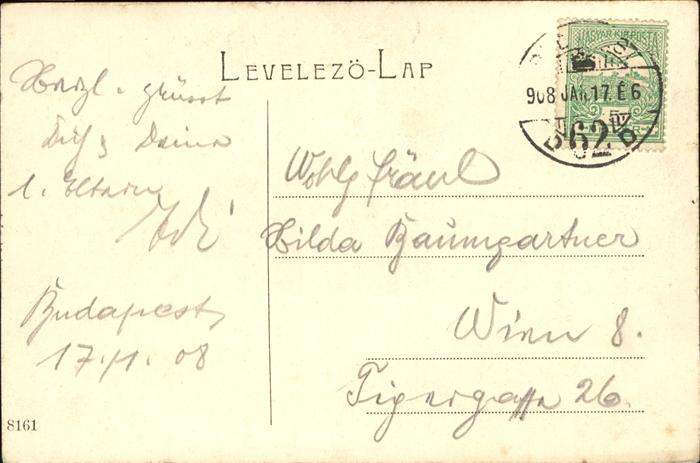 LEVELEZÖ-LAP
MAGYAR KIR. POSTA
908 JAN 17 E 6
62
Herzl. grüsst
Dich & Deine
l. Eltern
Budapest,
17./1. 08
Wohlg. Fräul.
Hilda Baumgartner
Wien 8.
Tigergasse 26.
8161